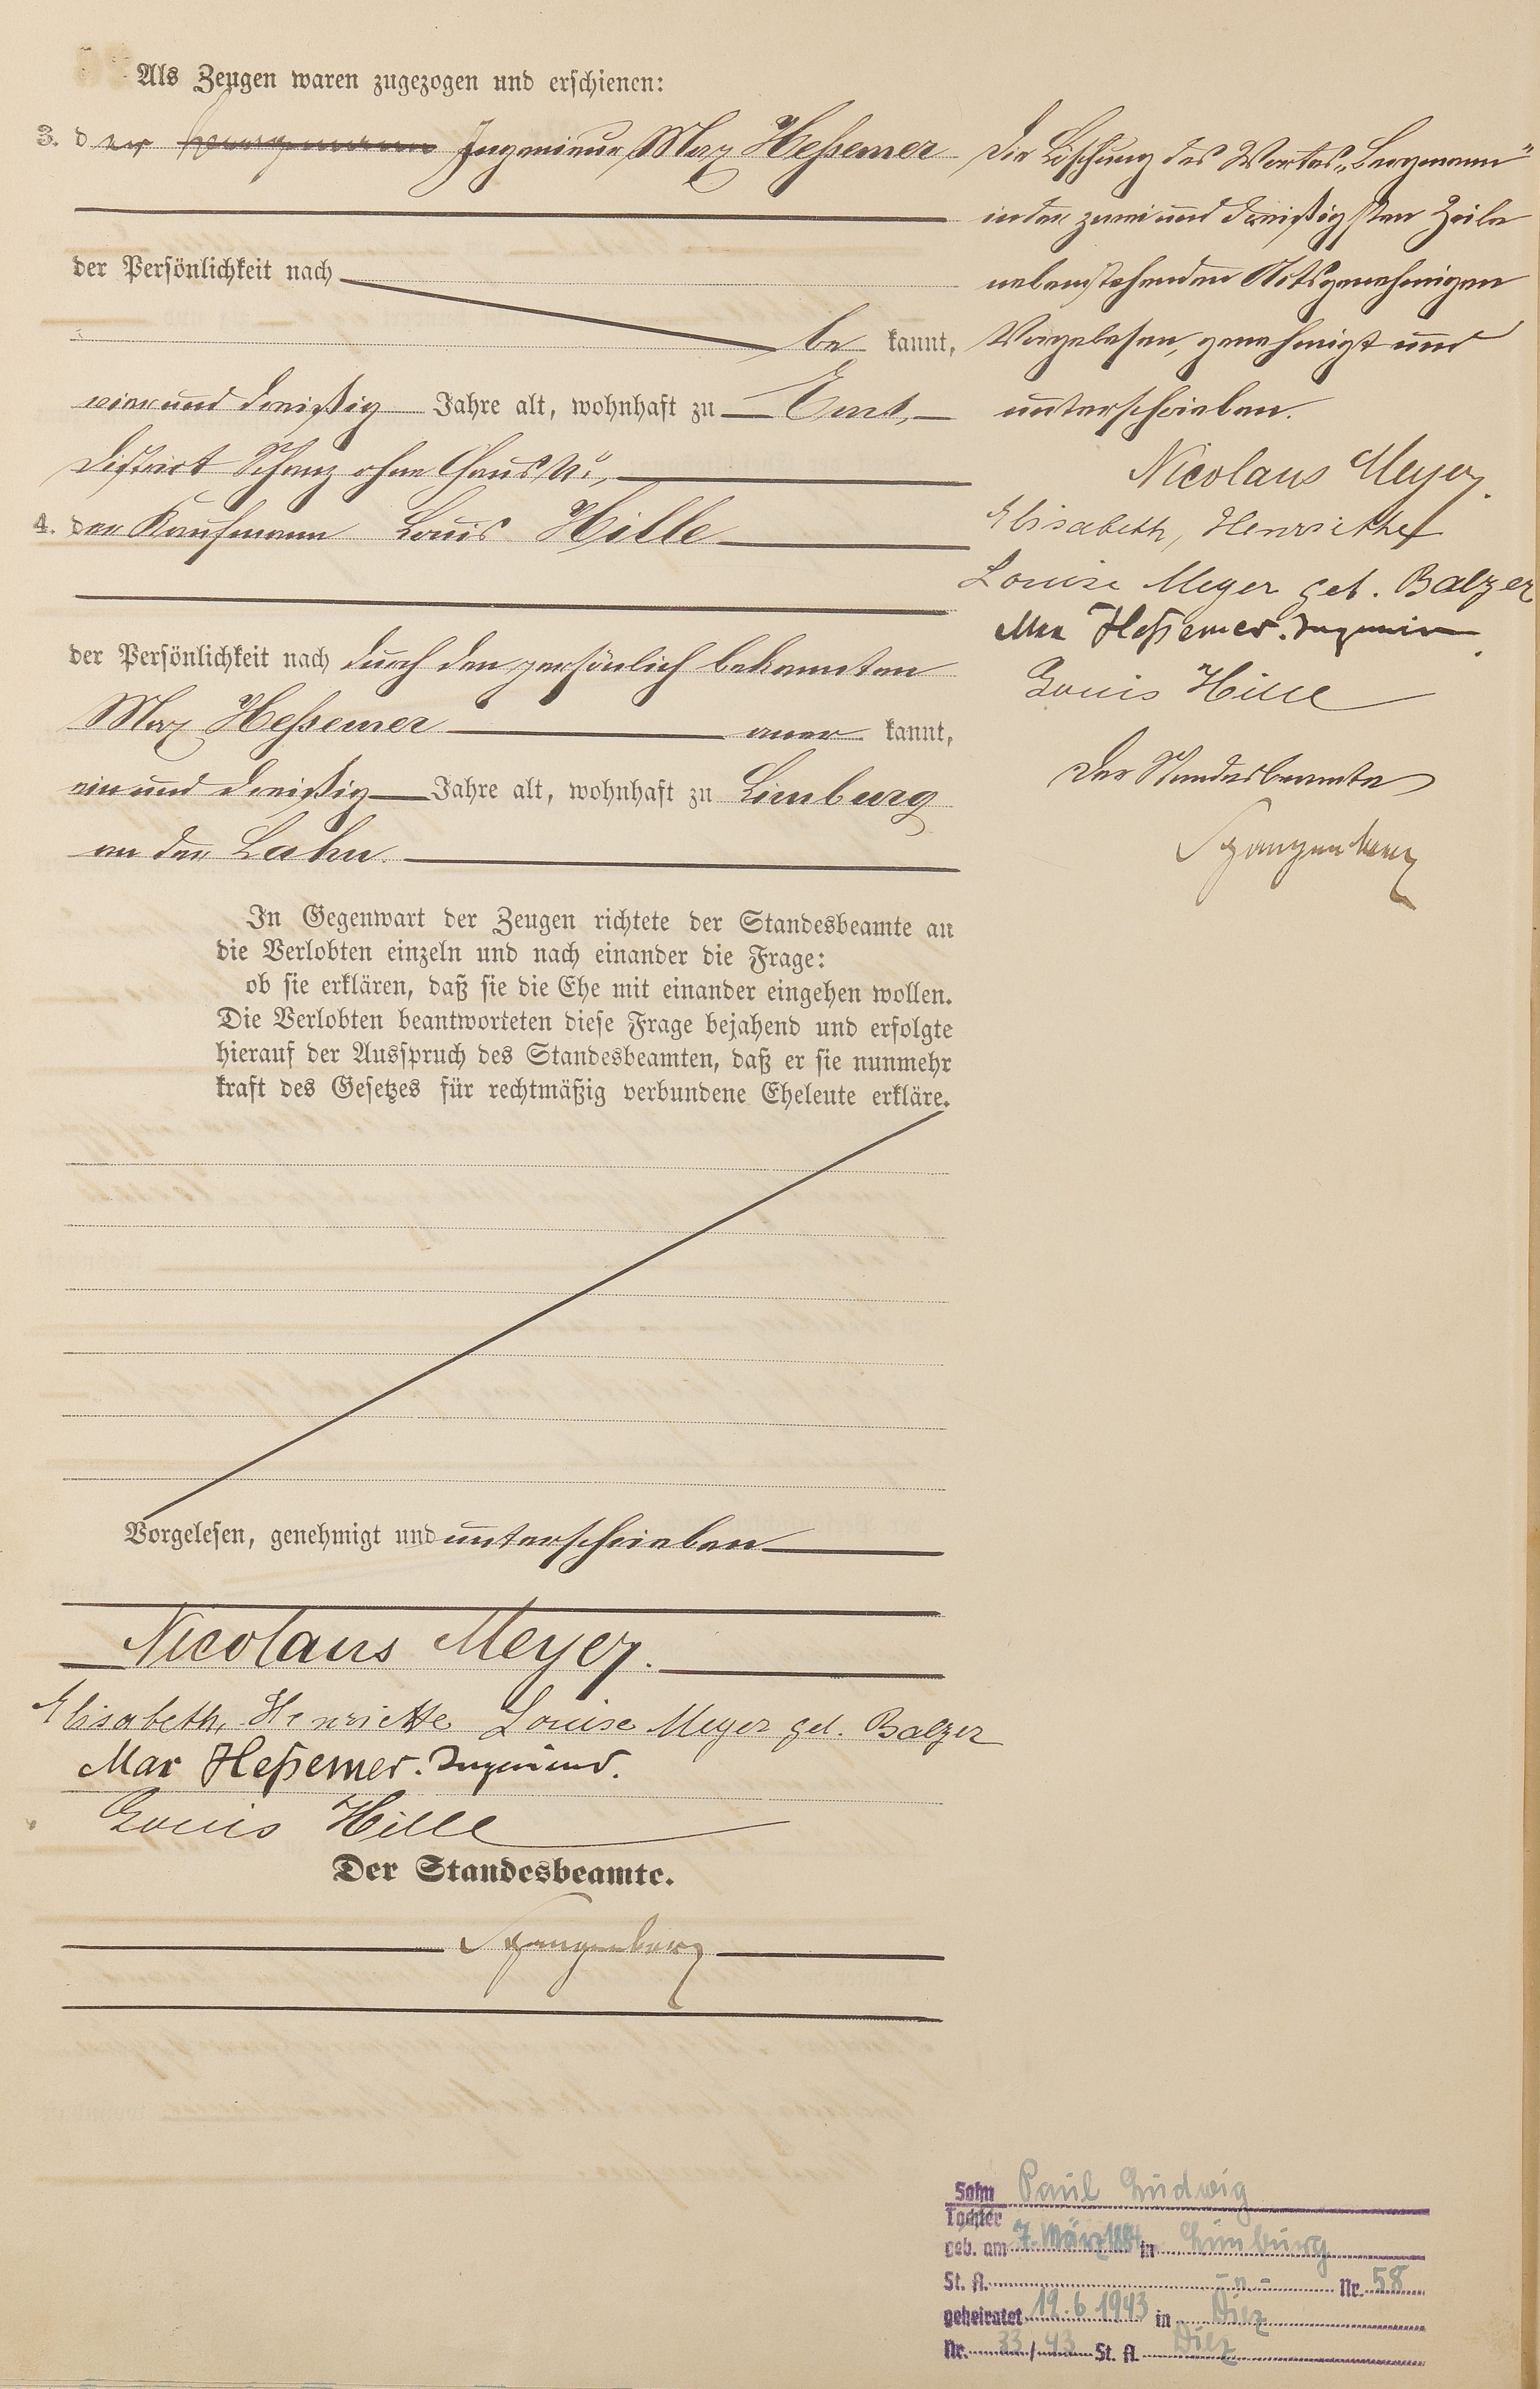 Als Zeugen waren zugezogen und erschienen:
3. der Bergmann Ingenieur Max Heßemer
der Persönlichkeit nach
be kannt,
vier und dreißig Jahre alt, wohnhaft zu Ems,
District Schanz ohne Haus No,
4. der Kaufmann Louis Hille
der Persönlichkeit nach durch den persönlich bekannten
Max Heßemer aner kannt,
ein und dreißig Jahre alt, wohnhaft zu Limburg
an der Lahn.
In Gegenwart der Zeugen richtete der Standesbeamte an
die Verlobten einzeln und nach einander die Frage:
ob sie erklären, daß sie die Ehe mit einander eingehen wollen.
Die Verlobten beantworteten diese Frage bejahend und erfolgte
hierauf der Ausspruch des Standesbeamten, daß er sie nunmehr
kraft des Gesetzes für rechtmäßig verbundene Eheleute erkläre.
Vorgelesen, genehmigt und unterschrieben
Nicolaus Meyer.
Elisabeth, Henriette Louise Meyer geb. Balzer
Max Heßemer. Ingenieur.
Louis Hille
Der Standesbeamte.
Spangenberg
Die Löschung des Wortes „Bergmann"
in der zwei und dreißigsten Zeile
nebenstehenden Akts genehmigen
Vorgelesen, genehmigt und
unterschrieben.
Nicolaus Meyer.
Elisabeth, Henriette
Louise Meyer geb. Balzer
Max Heßemer. Ingenieur.
Louis Hille
Der Standesbeamte
Spangenberg
Sohn Paul Ludwig
Tochter
geb. am 7. März 1884 in Limburg
St. A. - " - Nr. 58
geheiratet 19.6.1943 in Diez
Nr. 33 / 43 St. A. Diez